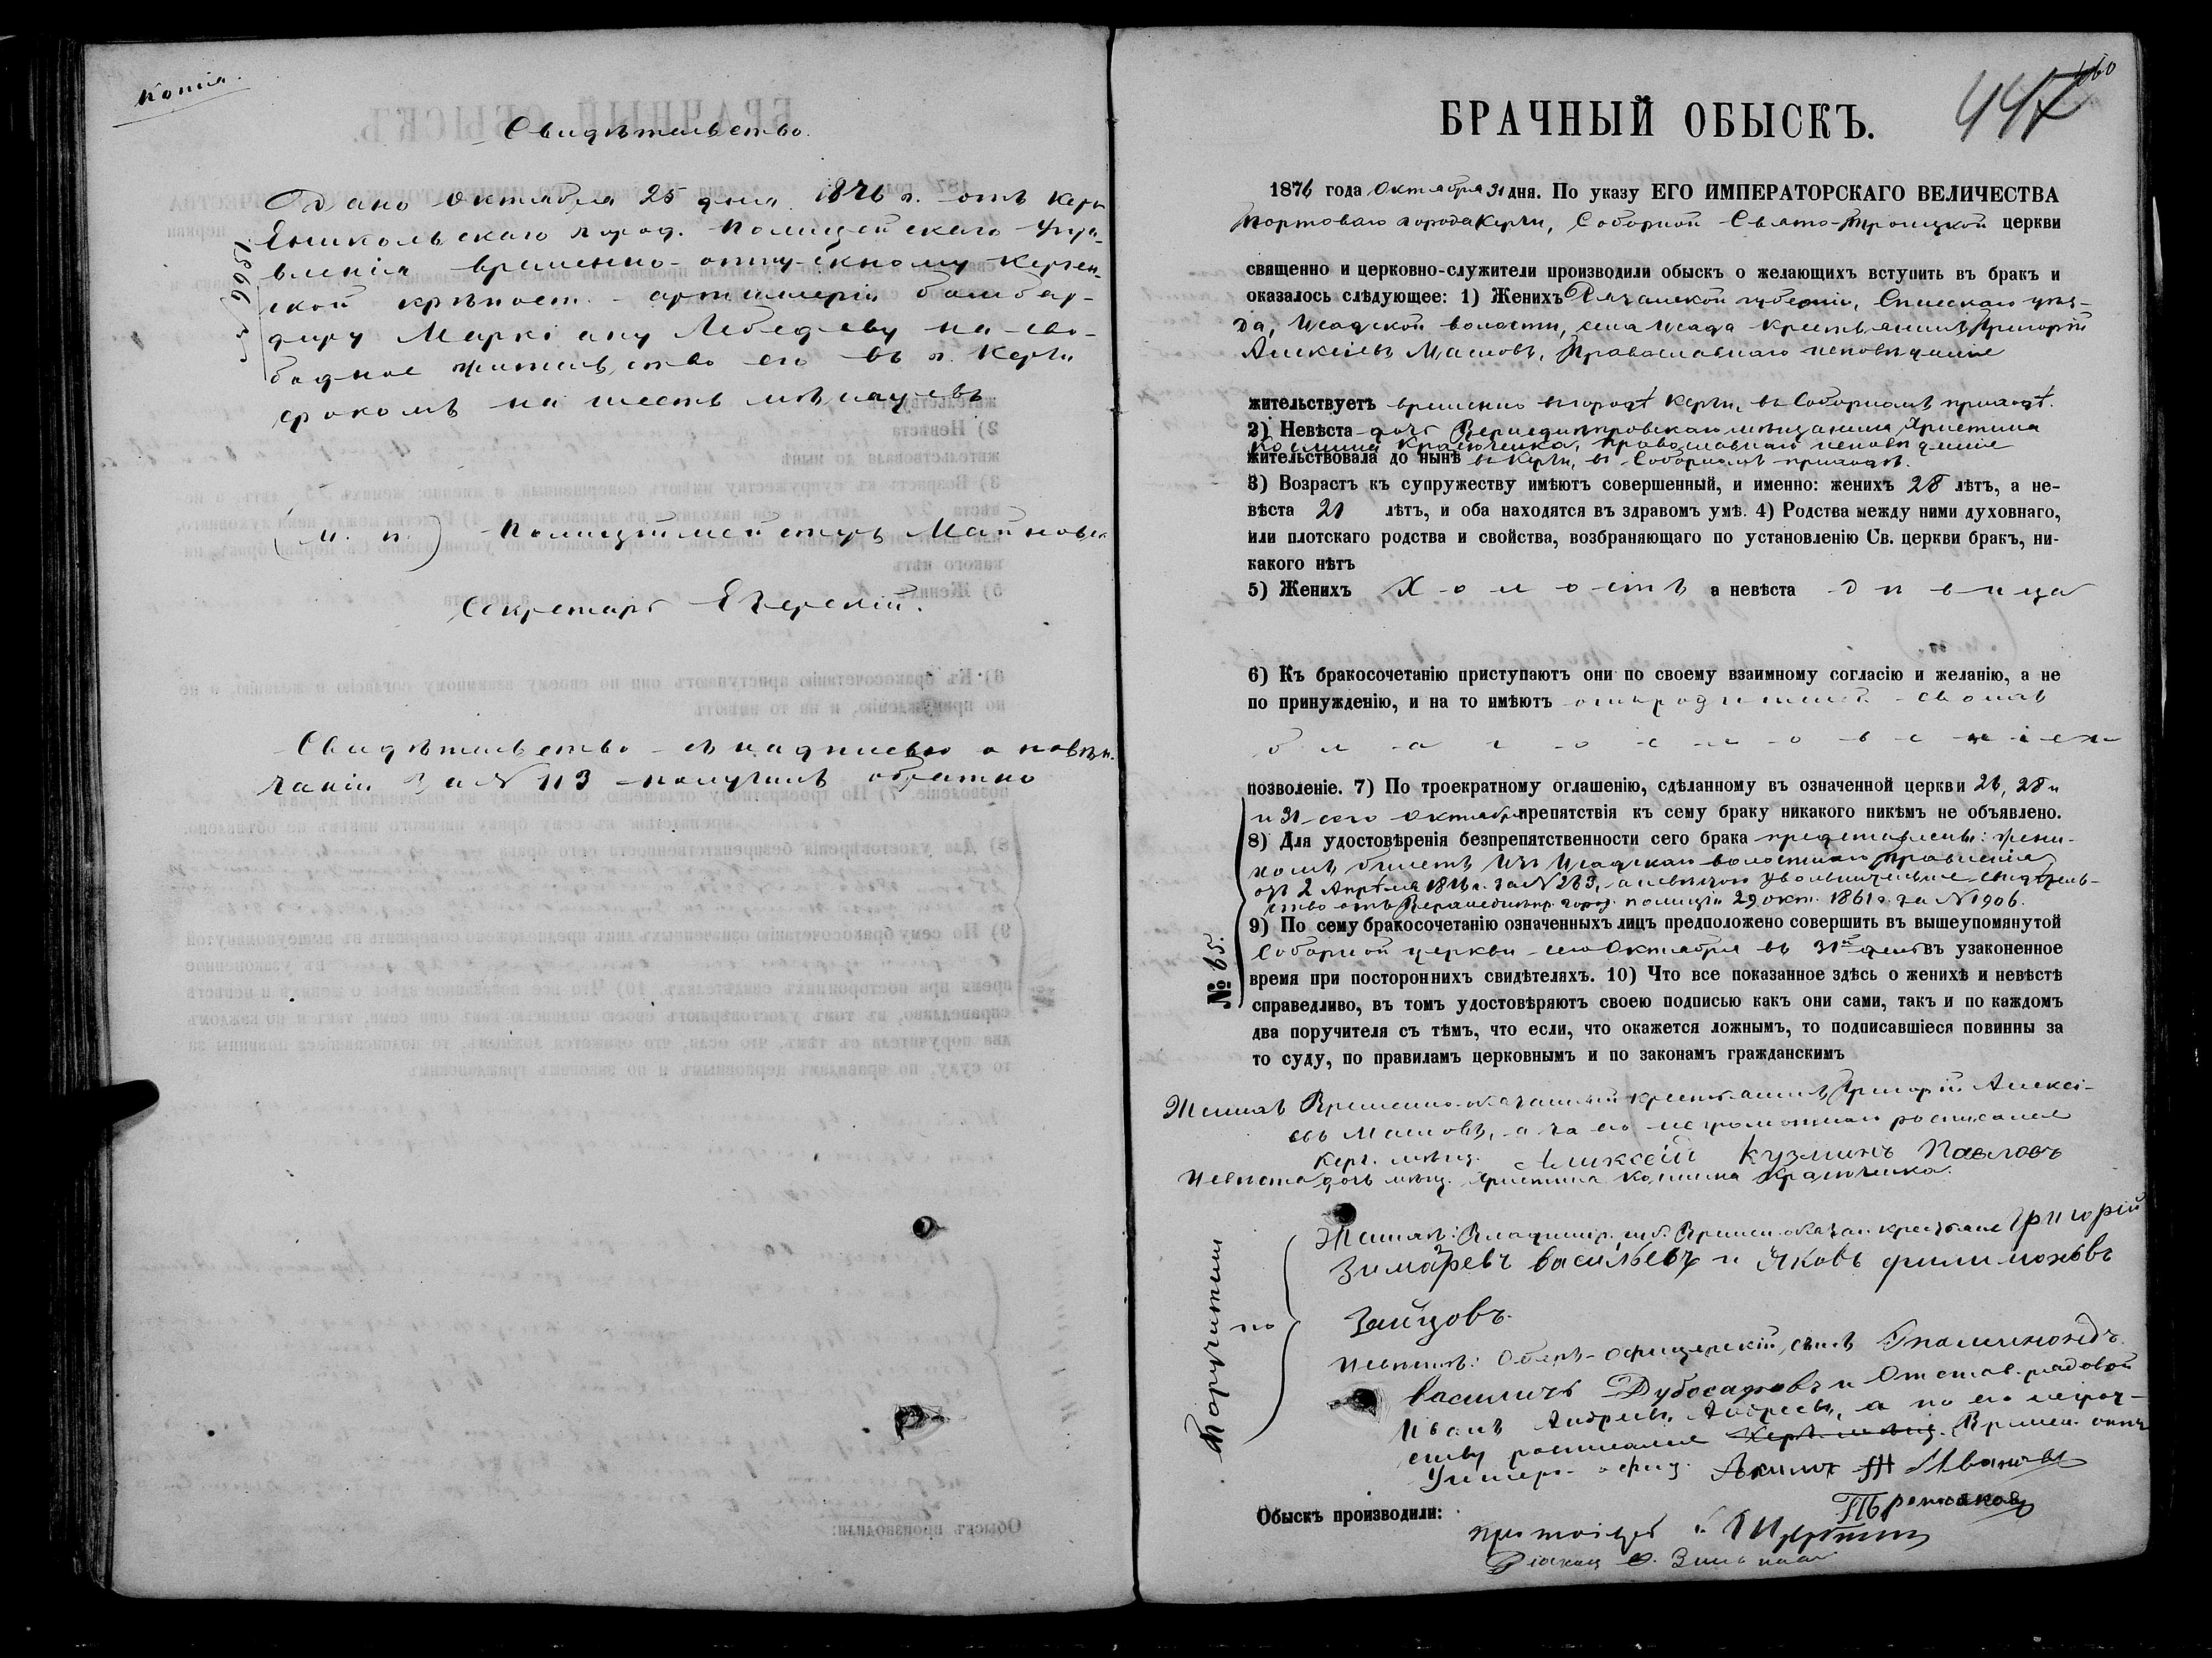 Копія.
Свидѣтельство.
Дано Октября 25 дня 1876 г. отъ Керч
Еникольскаго город. Полицейскаго Упра-
вленія временно-отпускному Керчен-
ской крѣпост. артиллеріи бомбар-
диру Маркіану Лебедеву на сво-
бодное жительство его въ г. Керчи
срокомъ на шесть мѣсяцевъ
(М. П.) Полицiймейстеръ
Секретарь
Свидѣтельство съ надписью о повѣн-
чаніи за № 113 получилъ обратно
447
460
БРАЧНЫЙ ОБЫСКЪ.
1876 года Октября 31 дня. По указу ЕГО ИМПЕРАТОРСКАГО ВЕЛИЧЕСТВА
Портоваго города Керчи, Соборной Свято-Троицкой церкви
священно и церковно-служители производили обыскъ о желающихъ вступить въ бракъ и
оказалось слѣдующее: 1) Женихъ Рязанской губерніи, Спасскаго уѣз-
да, Исадской волости, села Исада крестьянинъ Григорій
Алексѣевъ Масловъ, Православнаго исповѣданія
жительствуетъ временно въ городѣ Керчи, въ Соборномъ приходѣ.
2) Невѣста дочь Верхнеднѣпровскаго мѣщанина Христина
Космина православнаго исповѣданія
жительствовала до нынѣ въ Керчи, въ Соборномъ приходѣ.
3) Возрастъ къ супружеству имѣютъ совершенный, и именно: женихъ 28 лѣтъ, а не-
вѣста 21 лѣтъ, и оба находятся въ здравомъ умѣ. 4) Родства между ними духовнаго,
или плотскаго родства и свойства, возбраняющаго по установленію Св. церкви бракъ, ни-
какого нѣтъ
5) Женихъ Холостъ а невѣста дѣвица
6) Къ бракосочетанію приступаютъ они по своему взаимному согласію и желанію, а не
по принужденію, и на то имѣютъ отъ родителей своихъ
благословеніе
позволеніе. 7) По троекратному оглашенію, сдѣланному въ означенной церкви 26, 28 и
и 31 сего Октября препятствія къ сему браку никакого никѣмъ не объявлено.
8) Для удостовѣренія безпрепятственности сего брака представлены: жени-
хомъ билетъ изъ Исадскаго волостнаго правленія
отъ 2 Апрѣля 1876 г. за № 263, а невѣстою увольнительное свидѣтель-
ство отъ Верхнеднѣпр. город. полиціи 29 окт. 1861 г. за № 1906.
9) По сему бракосочетанію означенныхъ лицъ предположено совершить въ вышеупомянутой
Соборной церкви сего Октября въ 31й день въ узаконенное
время при постороннихъ свидѣтеляхъ. 10) Что все показанное здѣсь о женихѣ и невѣстѣ
справедливо, въ томъ удостовѣряютъ своею подписью какъ они сами, такъ и по каждомъ
два поручителя съ тѣмъ, что если, что окажется ложнымъ, то подписавшіеся повинны за
то суду, по правиламъ церковнымъ и по законамъ гражданскимъ
№ 65.
Женихъ Временно-обязанный крестьянинъ Григорій Алексѣ-
евъ Масловъ, а за его неграмотнаго росписался
Керч. мѣщ. Аликсей Кузминъ Павловъ
Невѣста дочь мѣщ. Христина Космина
Поручители
по
Женихѣ: Владимір. губ. Времен. обязан. крестьяне Григорій
Васильевъ и Яковъ филимоновъ
Зайцовъ.
Невѣстѣ: Оберъ-офицерскій сынъ
Василичъ Дубосаровъ и Отстав. рядовой
Иванъ Андреевъ Андреевъ, а по его негра-
росписался Керч. мѣщ. Времен. отп.
Унтеръ-офиц. Иванович
Обыскъ производили:
Протоіерей
Діаконъ